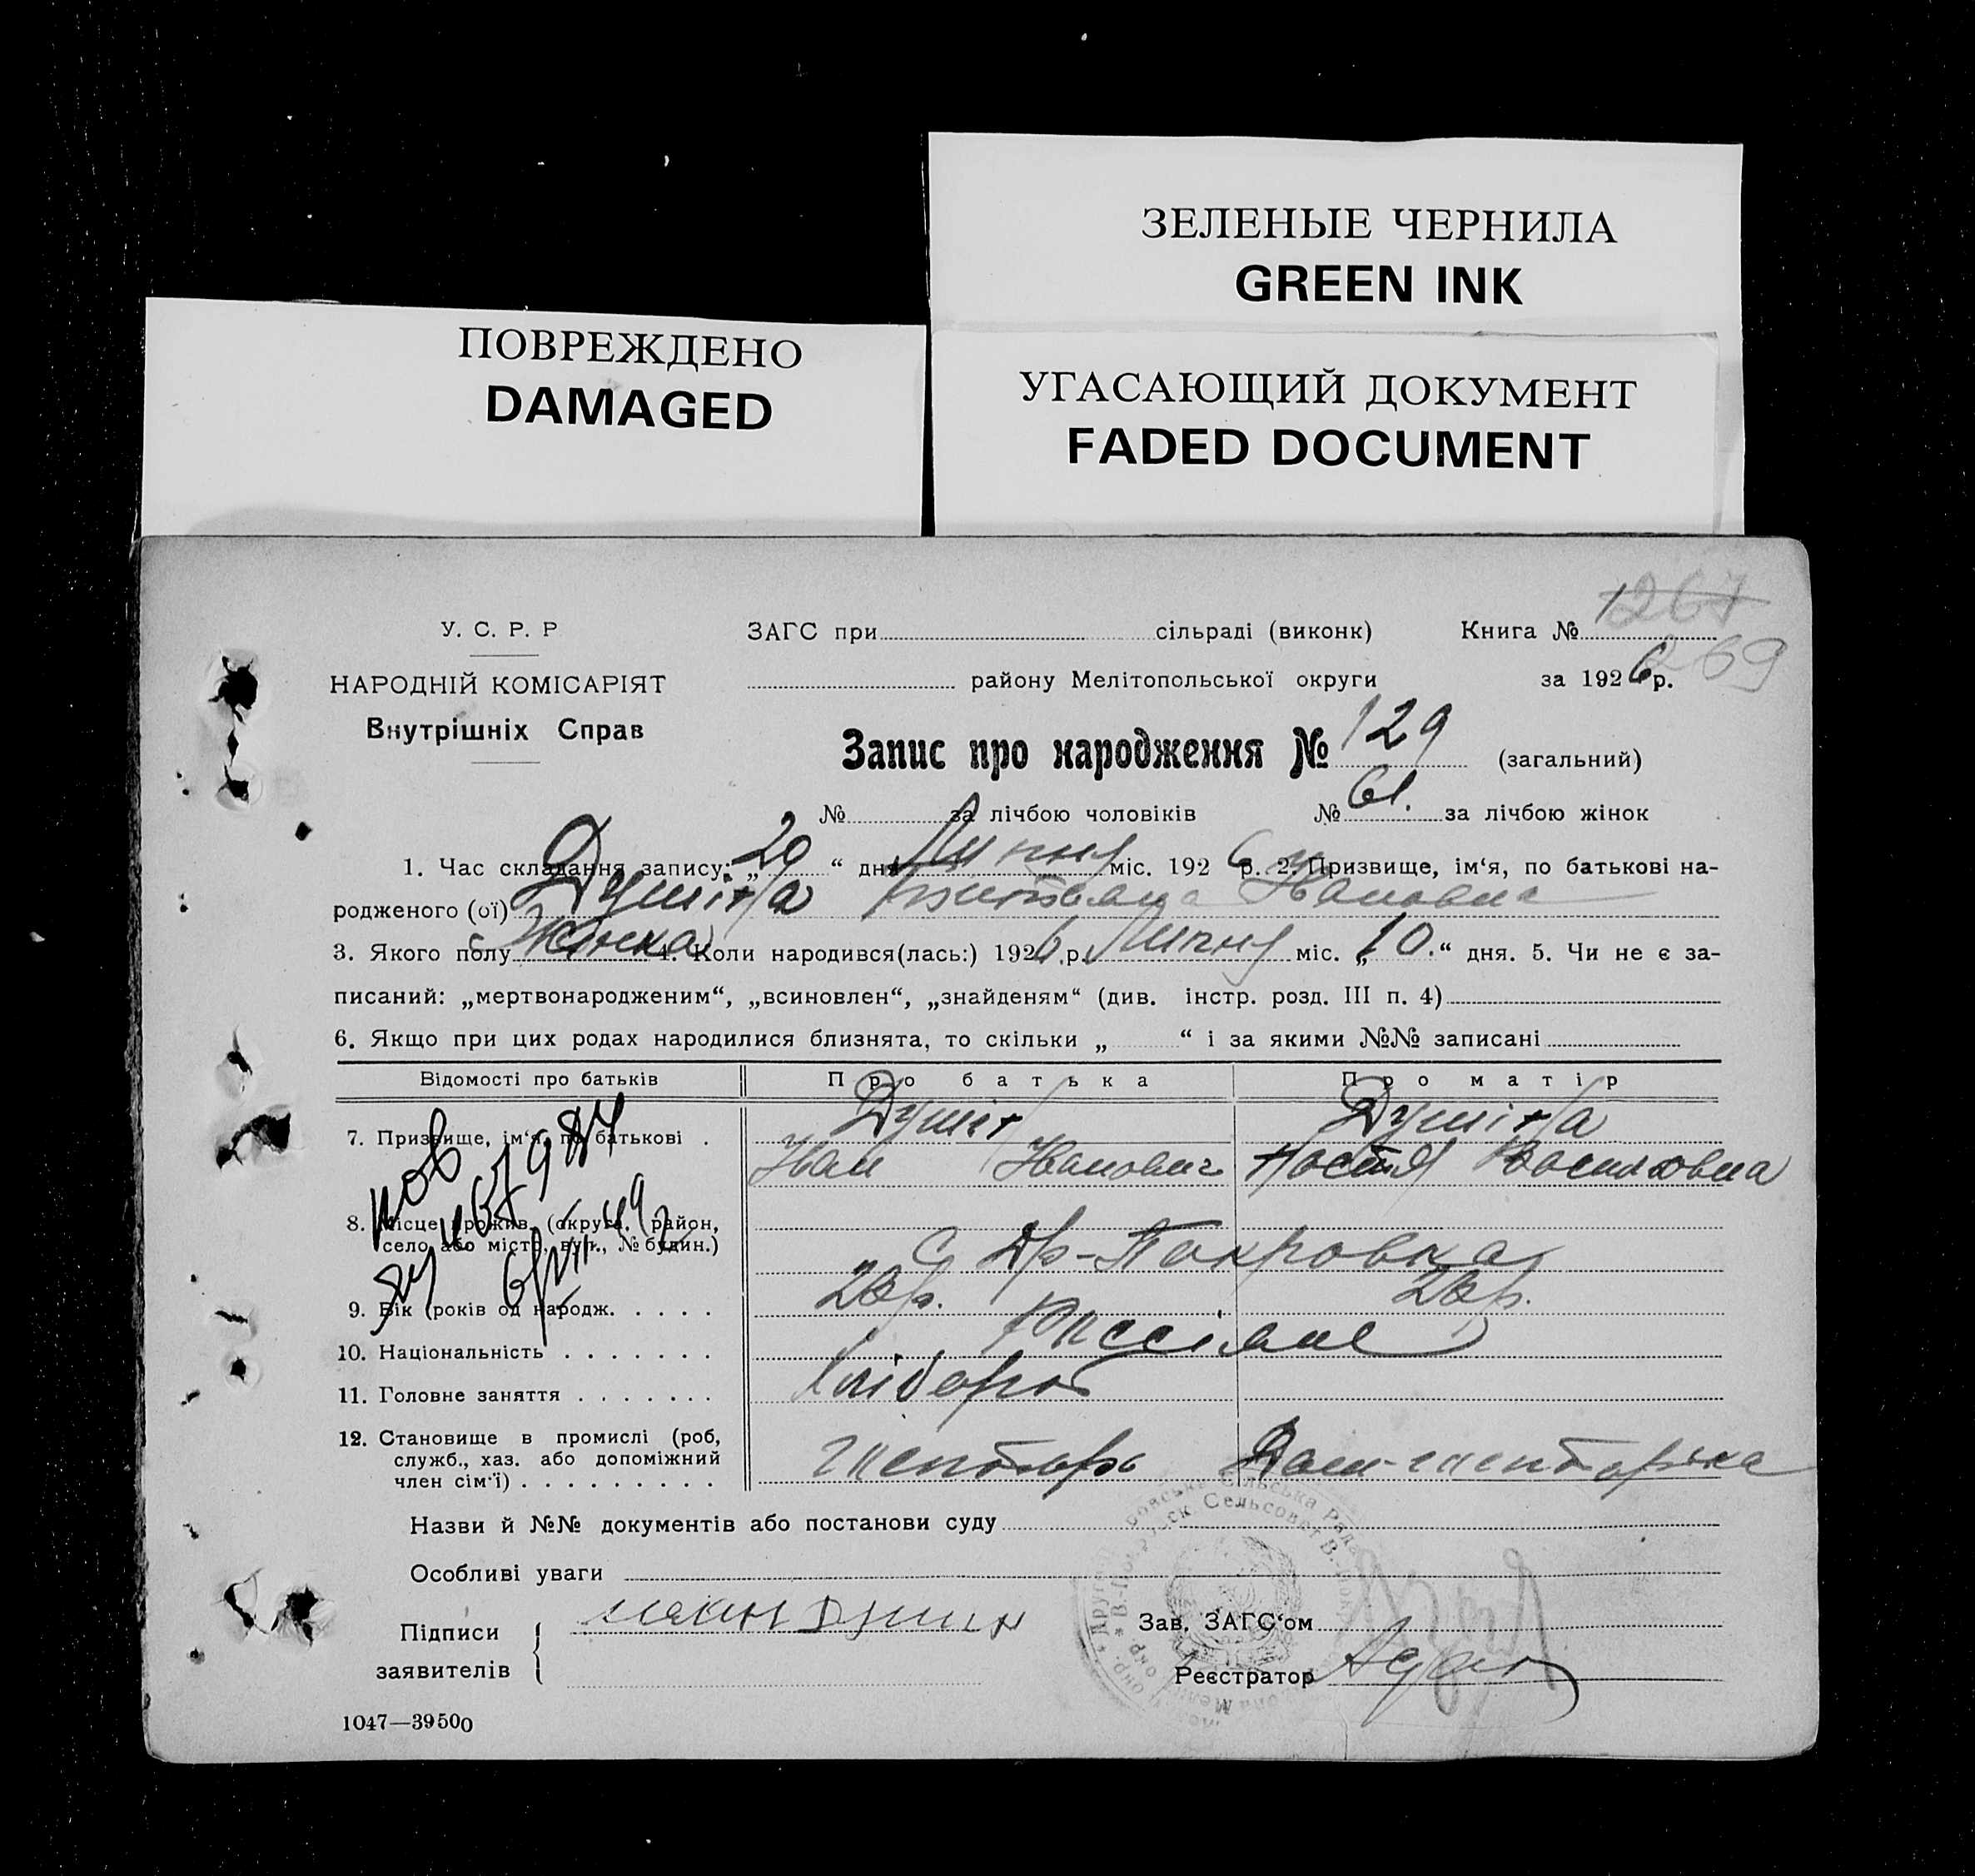 ЗЕЛЕНЫЕ ЧЕРНИЛА
GREEN INK
ПОВРЕЖДЕНО
DAMAGED
УГАСАЮЩИЙ ДОКУМЕНТ
FADED DOCUMENT
1267
269
У. С. Р. Р
НАРОДНІЙ КОМІСАРІЯТ
Внутрішніх Справ
ЗАГС при сільраді (виконк) Книга №
району Мелітопольської округи за 1926 р.
Запис про народження № 129 (загальний)
№ за лічбою чоловіків № 61. за лічбою жінок
1. Час складання запису: „20“ дня Липня міс. 1926 р. 2. Призвище, ім‘я, по батькові на-
родженого (ої) Душіна Ивановна
3. Якого полу Жіноча 4. Коли народився(лась:) 1926 р. Липня міс. „10.“ дня. 5. Чи не є за-
писаний: „мертвонародженим“, „всиновлен“, „знайденям“ (див. інстр. розд. III п. 4)
6. Якщо при цих родах народилися близнята, то скільки „ “ і за якими №№ записані
Відомості про батьків Про батька Про матір
7. Призвище, ім‘я, по батькові . Душін Душіна
Иван Иванович Настя Василовна
8. Місце прожив. (округа, район,
село або місто, вул., № будин.) С Др-Покровка
9. Вік (років од народж. . . . . 20р. 20р.
10. Національність . . . . . . . Россіяне
11. Головне заняття . . . . . . . хлібороб
12. Становище в промислі (роб,
служб., хаз. або допоміжний
член сім‘ї) . . . . . . . . .
Назви й №№ документів або постанови суду
Особливі уваги
Підписи
заявителів
Душин
Зав. ЗАГС‘ом
Реєстратор
1047—39500